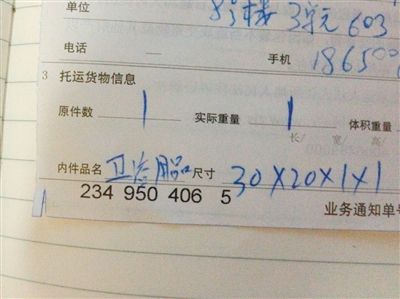 单位 8号楼 3单元 603
电话 — 手机 18650
3 托运货物信息
原件数 1 实际重量 1 体积重量
长/ 宽/ 高/
内件品名 卫浴用品 尺寸 30X20X1X1
234 950 406 5 业务通知单号